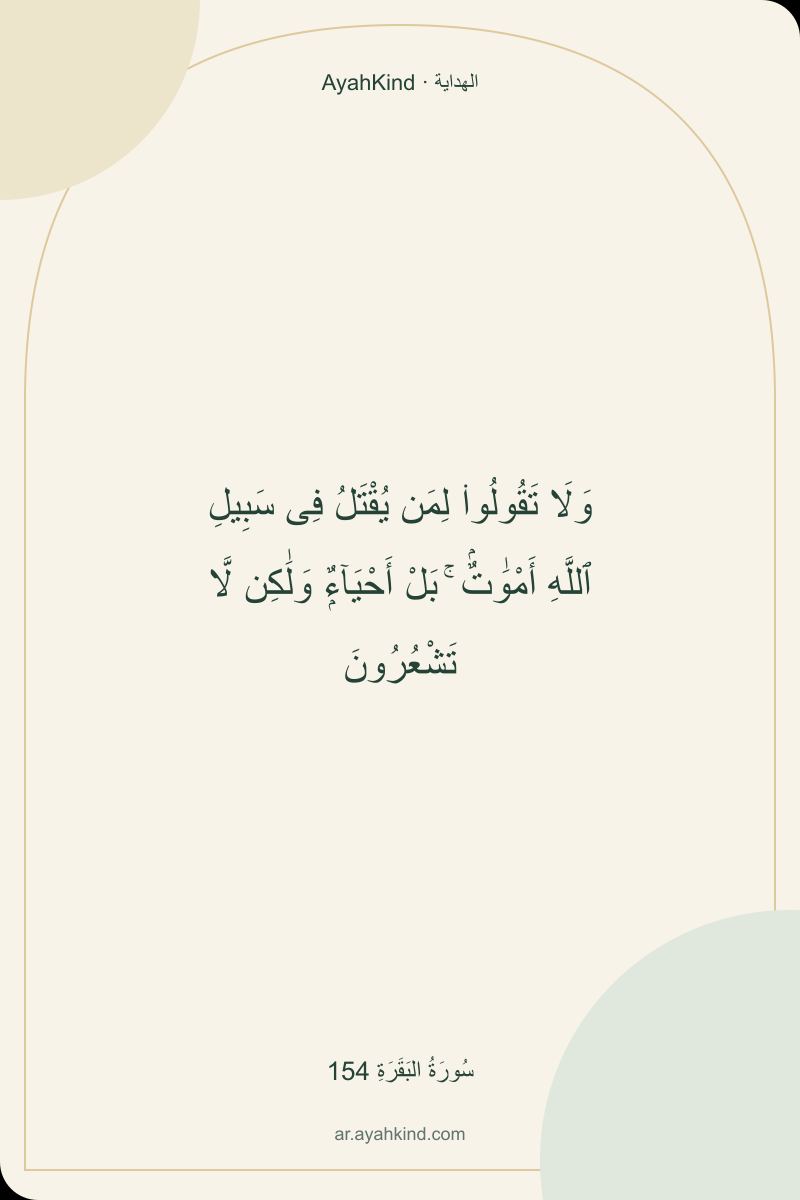 AyahKind · الهداية
وَلَا تَقُولُوا۟ لِمَن يُقْتَلُ فِى سَبِيلِ
ٱللَّهِ أَمْوَٰتٌۢ ۚ بَلْ أَحْيَآءٌۭ وَلَٰكِن لَّا
تَشْعُرُونَ
سُورَةُ البَقَرَةِ 154
ar.ayahkind.com